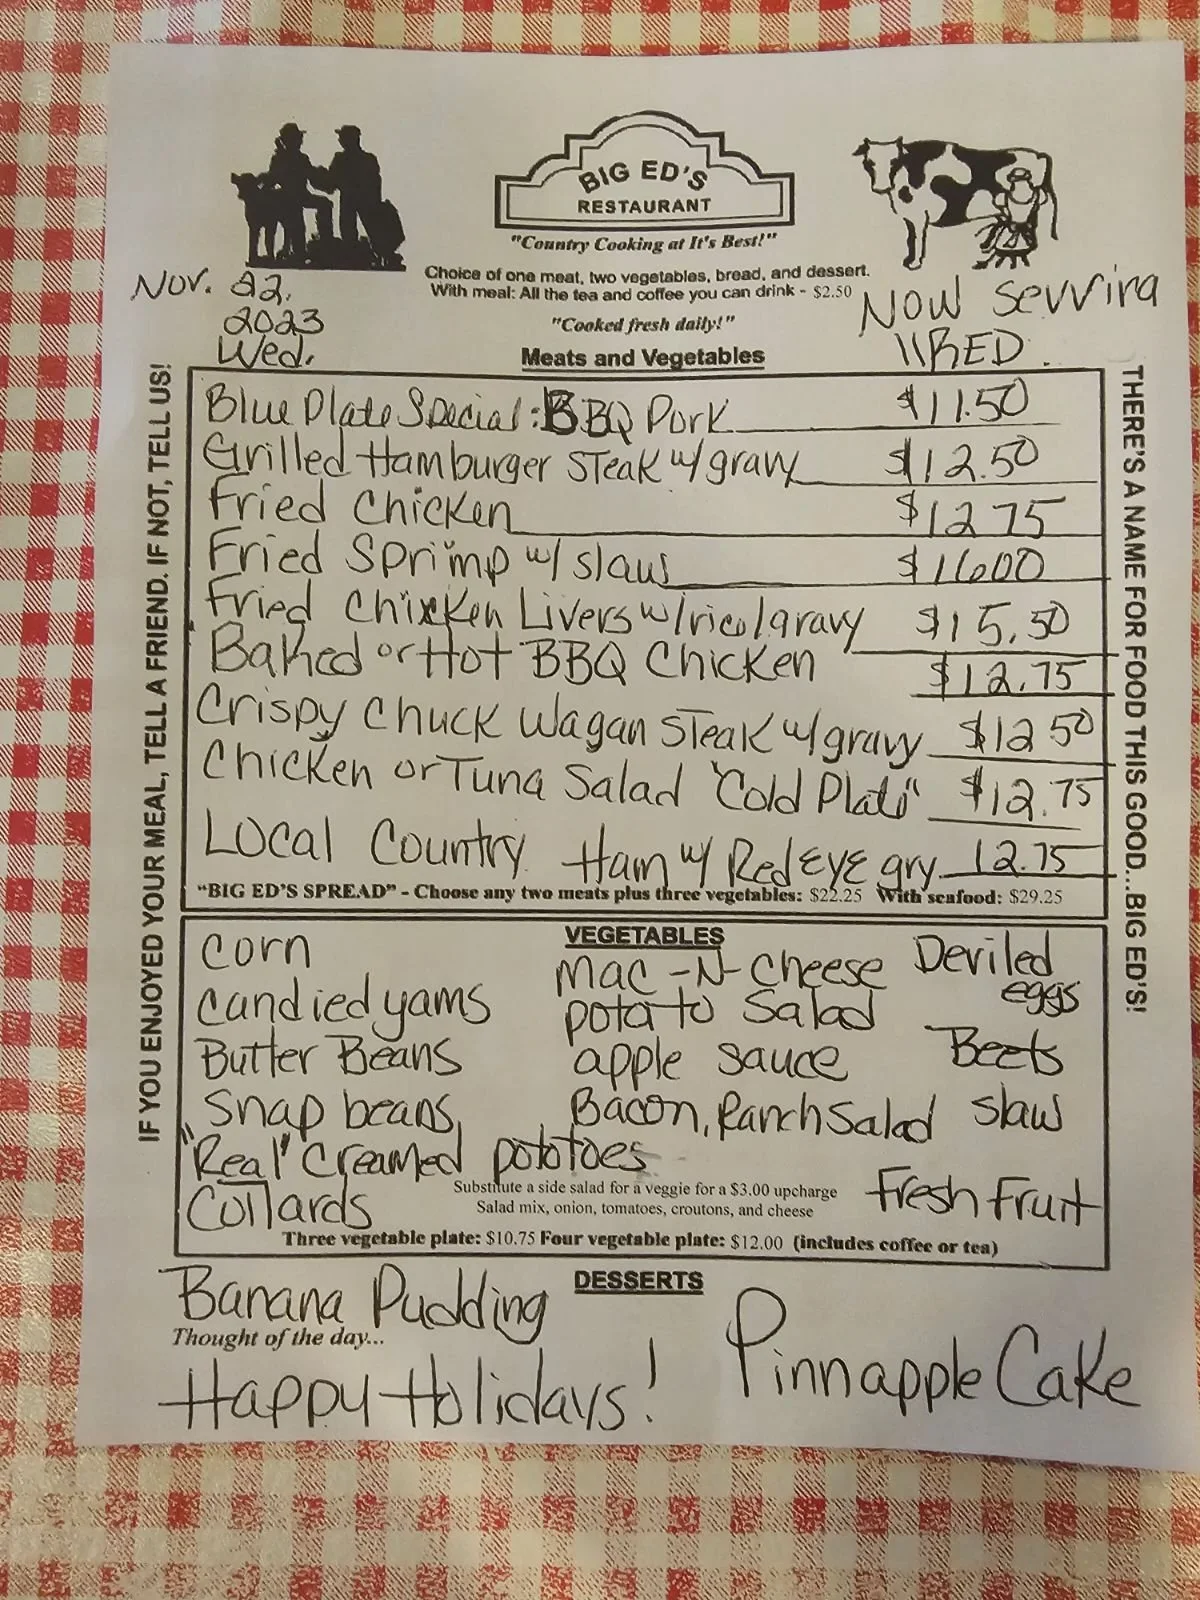 BIG ED'S
RESTAURANT
"Country Cooking at It's Best!"
Choice of one meat, two vegetables, bread, and dessert.
With meal: All the tea and coffee you can drink - $2.50
"Cooked fresh daily!"
Nov. 22.
2023
Wed.
NOW
Meats and Vegetables
IF YOU ENJOYED YOUR MEAL, TELL A FRIEND. IF NOT, TELL US!
THERE'S A NAME FOR FOOD THIS GOOD...BIG ED'S!
Blue Plate Special: BBQ Pork $11.50
Grilled Hamburger STeaK w/gravy $12.50
Fried Chicken $12 75
Fried Sprimp w/ slaw $16 00
Fried Chicken Livers w/rice/gravy $15.50
Baked or Hot BBQ Chicken $12.75
Crispy Chuck Wagan STeaK w/gravy $12 50
Chicken or Tuna Salad "Cold Plate" $12.75
Local Country Ham w/ Red EYE gry 12.75
"BIG ED'S SPREAD" - Choose any two meats plus three vegetables: $22.25 With seafood: $29.25
VEGETABLES
corn
candied yams
Butter Beans
Snap beans
"Real" Creamed pototoes
Collards
Mac -N- Cheese
potato Salad
apple sauce
Bacon, Ranch Salad
Deviled
eggs
Beets
slaw
Fresh Fruit
Substitute a side salad for a veggie for a $3.00 upcharge
Salad mix, onion, tomatoes, croutons, and cheese
Three vegetable plate: $10.75 Four vegetable plate: $12.00 (includes coffee or tea)
DESSERTS
Banana Pudding
Pinnapple Cake
Thought of the day...
Happy Holidays!